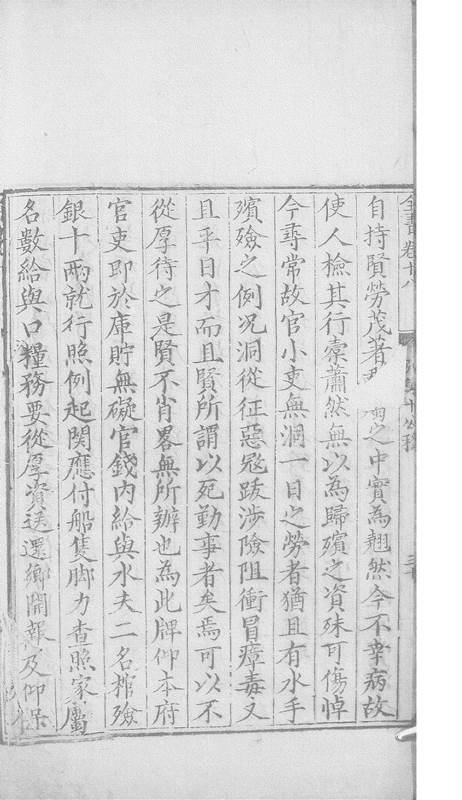 全書 卷十八
自持賢勞茂著 之中實為翹然今不幸病故
使人檢其行橐蕭然無以為歸殯之資殊可傷悼
今尋常故官小吏無洞一日之勞者猶且有水手
殯殮之例况洞從征惡𡨥跋涉險阻衝冒瘴毒又
且平日才而且賢所謂以死勤事者矣焉可以不
從厚待之是賢不肖畧無所辦也為此牌仰本府
官吏即於庫貯無礙官錢内給與水夫二名棺殮
銀十兩就行照例起関應付船隻脚力查照家屬
名數給與口糧務要從厚資送還鄉開報及仰保